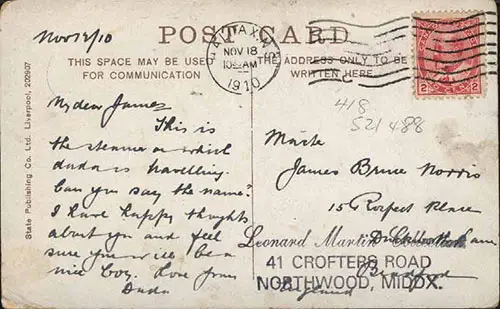 Nov 12/10
POST CARD
HALIFAX, N.S.
NOV 18
10 AM
1910
THIS SPACE MAY BE USED
FOR COMMUNICATION
THE ADDRESS ONLY TO BE
WRITTEN HERE
2 2
State Publishing Co. Ltd. Liverpool, 202907
My dear James
This is
the steamer on which
dada is travelling.
Can you say the name?
I have happy thoughts
about you and feel
sure you will be a
nice boy. Love from
Dada
418
521 488
James Bruce Norris
15 Place
Leonard Martin
Lane
41 CROFTERS ROAD
NORTHWOOD, MIDDX.
Bradford
England